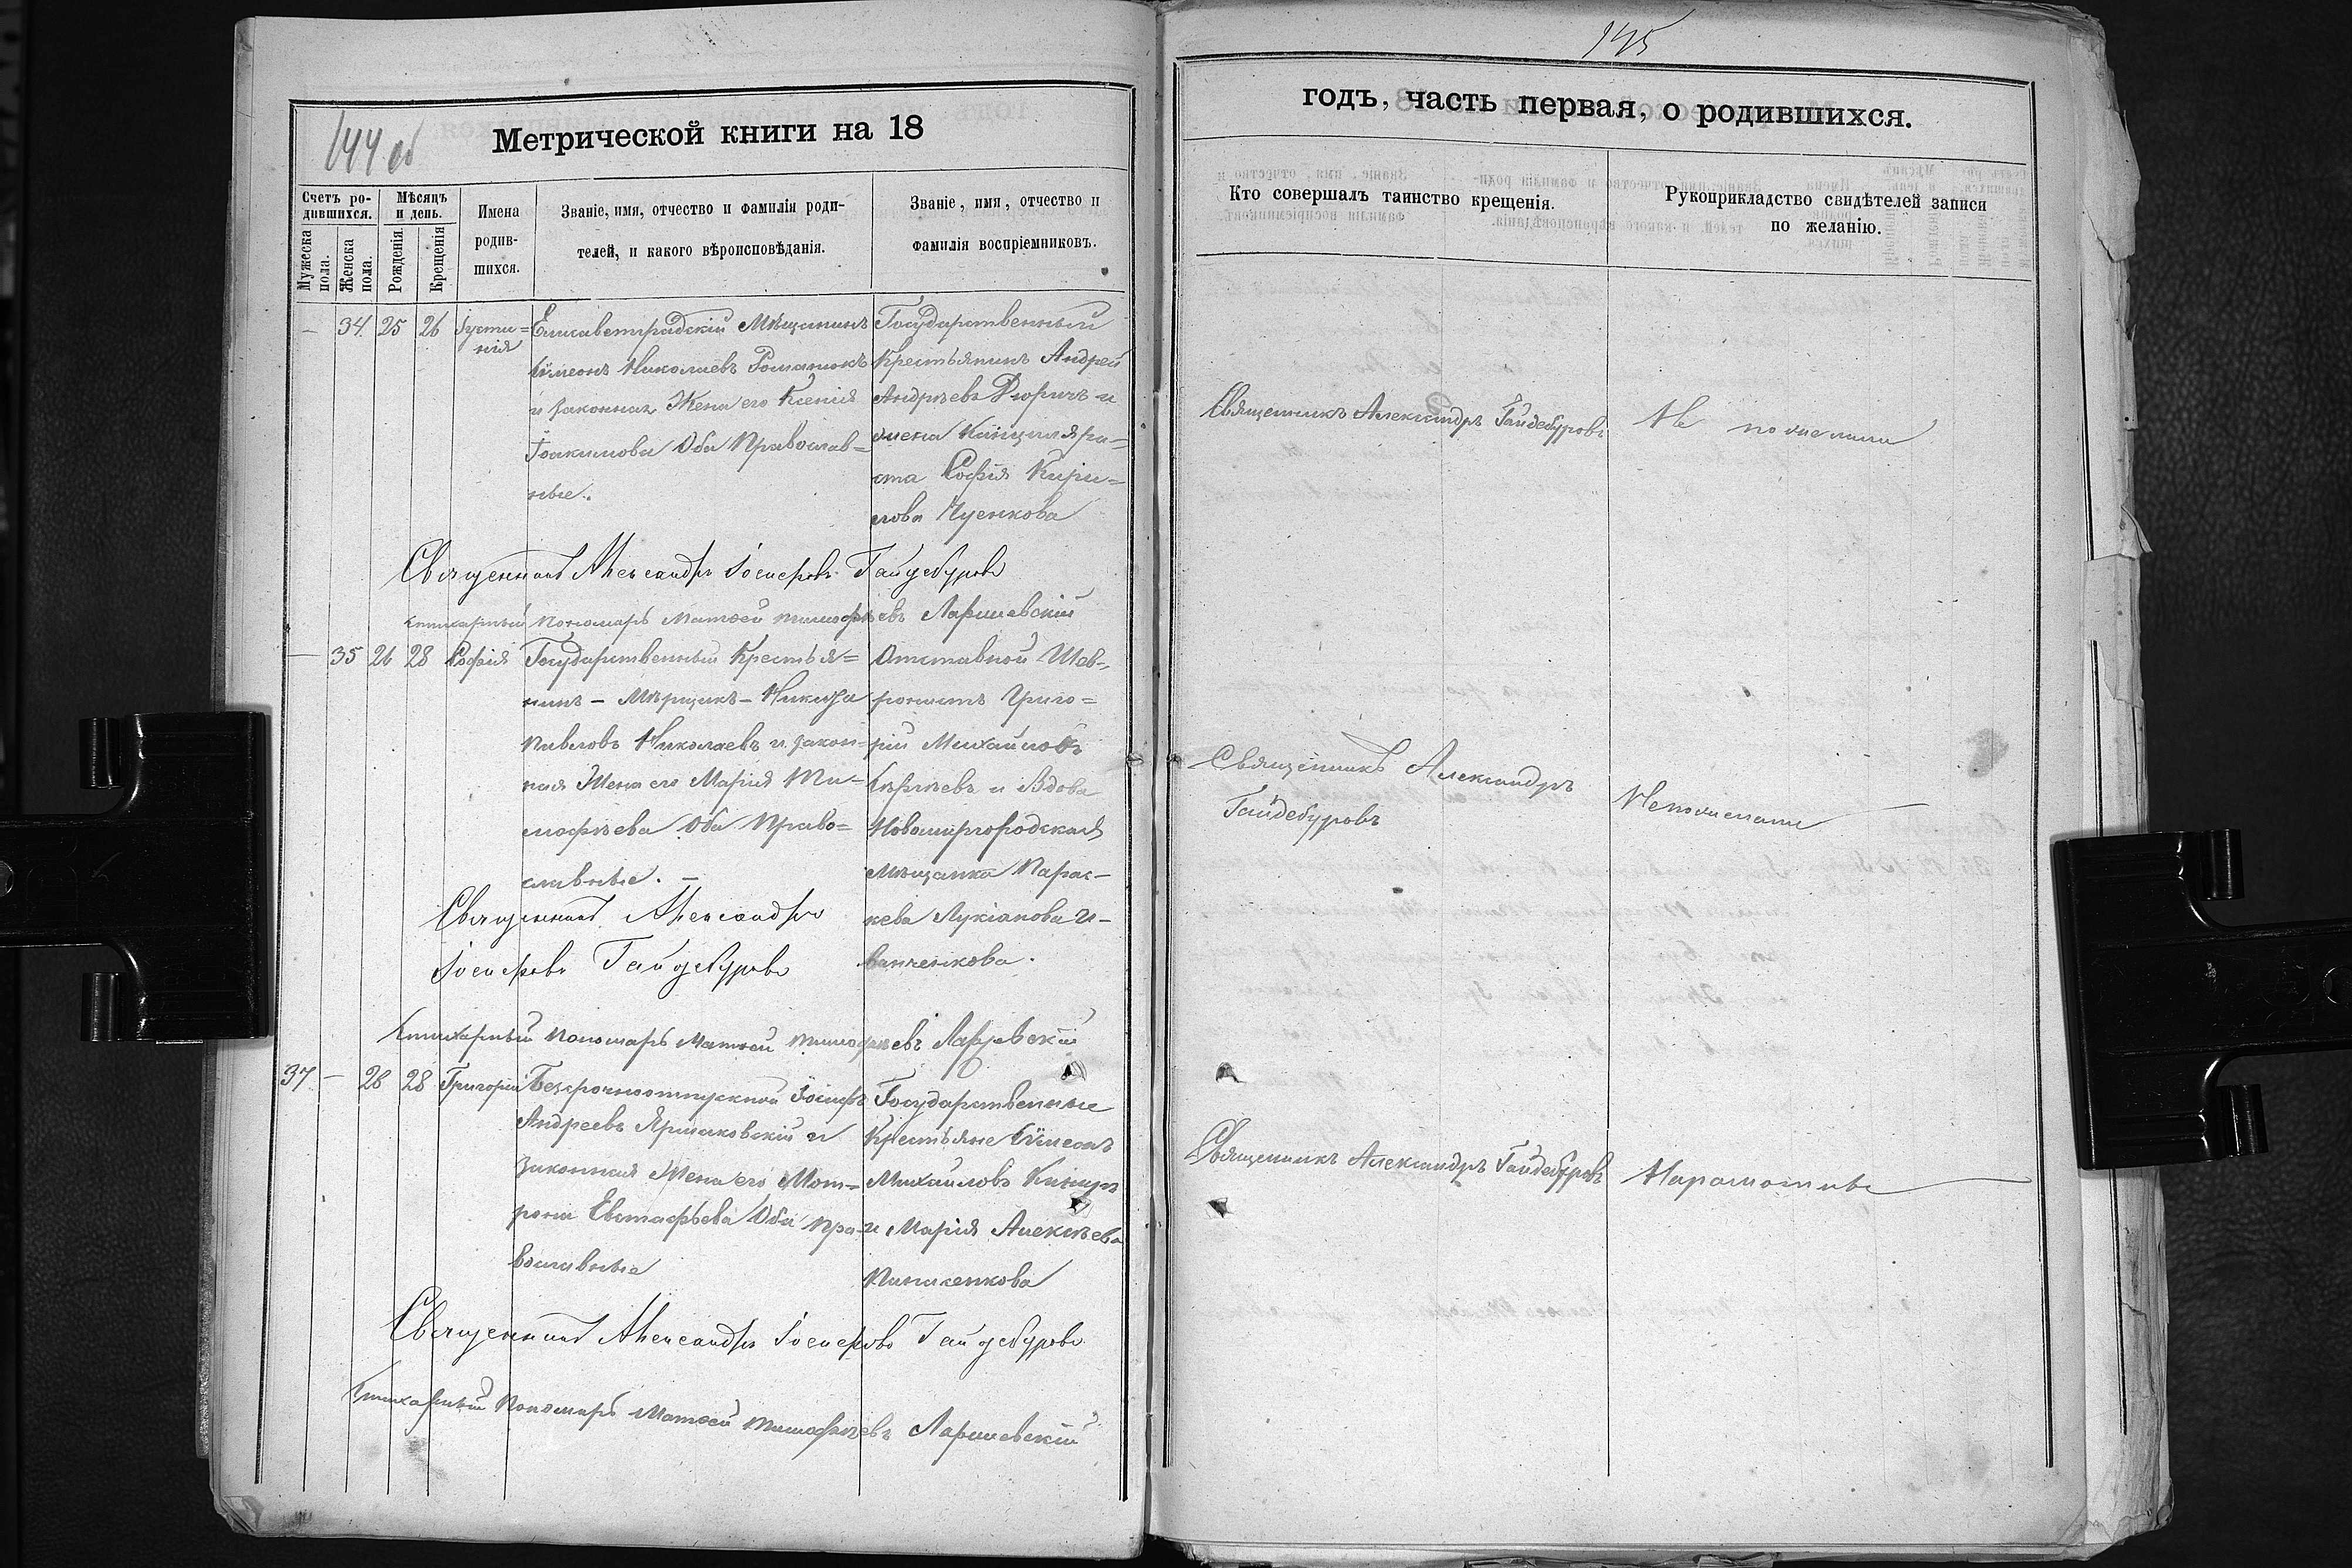 144 об
Метрической книги на 18
Счетъ ро-
дившихся.
Мужеска
пола.
Женска
пола.
Мѣсяцъ
и день.
Рожденія.
Крещенія
Имена
родив-
шихся.
Званіе, имя, отчество и фамилія роди-
телей, и какого вѣроисповѣданія.
Званіе, имя, отчество и
фамилія воспріемниковъ.
— 34. 25 26 Іусти=
нія
Елисаветградскій Мѣщанинъ
Сѵмеонъ Николаевъ Романюкъ
и законная Жена его Ксенія
Іоакимова Оба Православ=
ные.
Государственный
Крестьянинъ Андрей
Андрѣевъ и
жена Канцеляри=
ста Софія Кири=
лова
Священникъ Александръ Іосифовъ Гайдебуровъ
Стихарный Пономарь Матѳей Тимофѣевъ
— 35 26 28 Софія
Государственный Крестья=
нинъ – Мѣрщикъ – Никита
Павловъ Николаевъ и закон=
ная Жена его Марія Ти=
мофѣева Оба Право=
славные. —
Отставной
Григо=
рій Михайловъ
и Вдова
Новомиргородская
Мѣщанка Парас-
кева Лукіанова И-
ванченкова.
Священникъ Александръ
Іосифовъ Гайдебуровъ
Стихарный Пономарь Матѳей Тимофѣевъ
37 — 26 28 Григорій
Безсрочноотпускной Іосифъ
Андреевъ Ярмаковскій и
законная Жена его Мот=
рона Евстафьева Оба Пра-
вославные
Государственные
Крестьяне Сѵмеонъ
Михайловъ
и Марія Алексѣева
Священникъ Александръ Іосифовъ Гайдебуровъ
Стихарный Пономарь Матѳей Тимофѣевъ
145
годъ, часть первая, о родившихся.
Кто совершалъ таинство крещенія.
Рукоприкладство свидѣтелей записи
по желанію.
Священникъ Александръ Гайдебуровъ
Не пожелали
Священникъ Александръ
Гайдебуровъ
Непожелали
Священникъ Александръ Гайдебуровъ